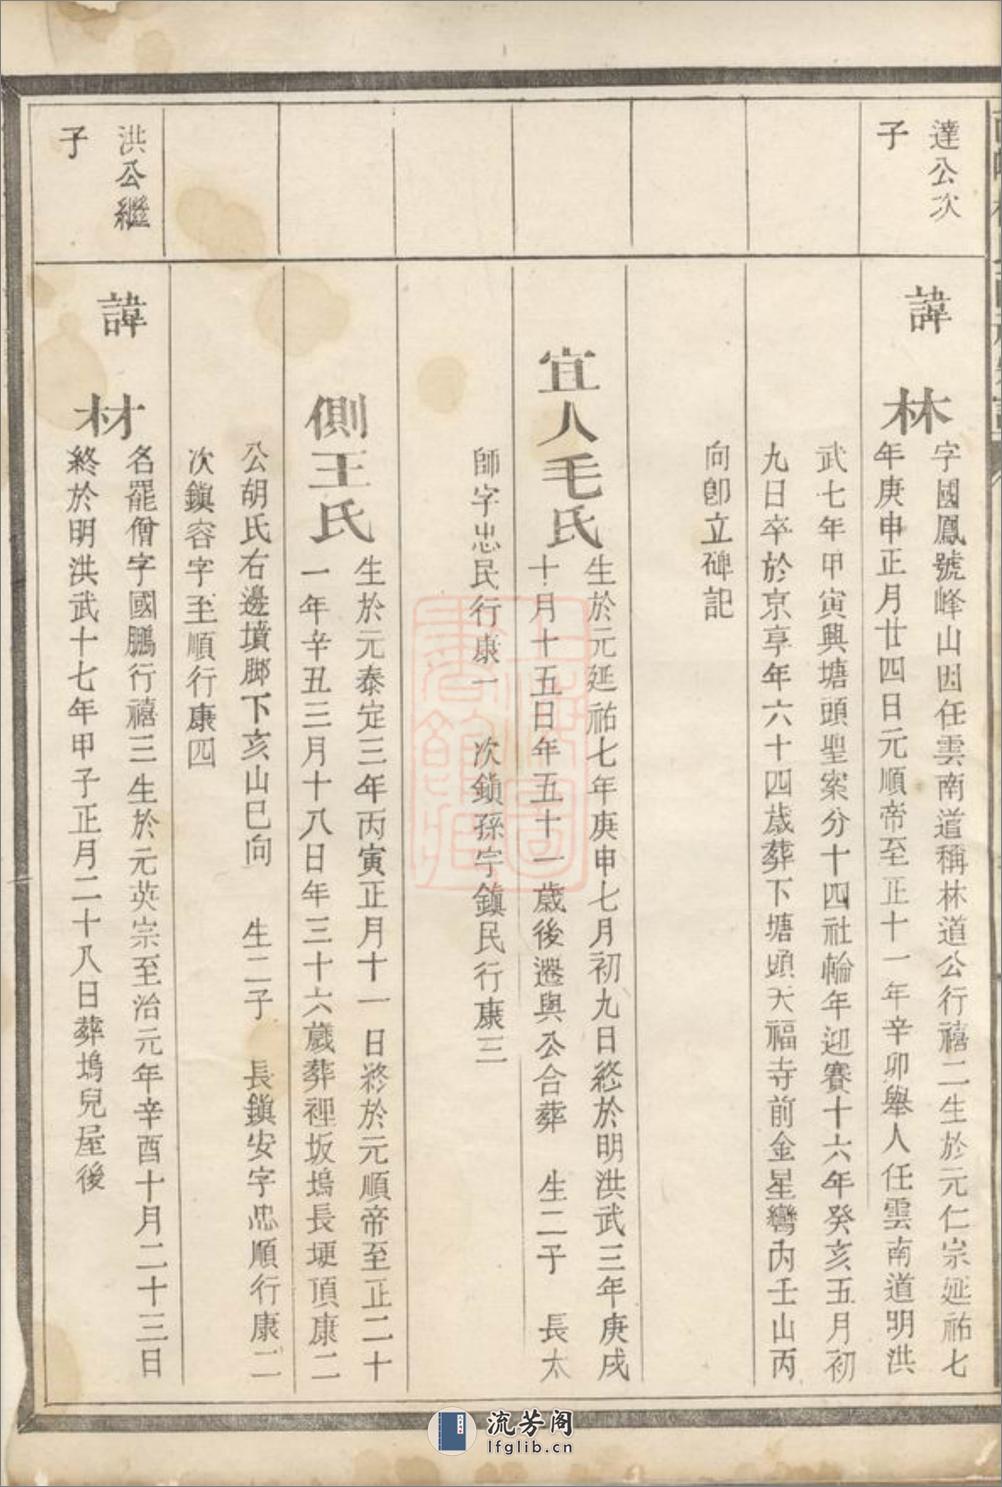 達公次
子
諱
林
字國鳳號峰山因任雲南道稱林道公行禧二生於元仁宗延祐七
年庚申正月廿四日元順帝至正十一年辛卯舉人任雲南道明洪
武七年甲寅興塘頭聖案分十四社輪年迎賽十六年癸亥五月初
九日卒於京享年六十四歲葬下塘頭天福寺前金星灣內壬山丙
向卽立碑記
宜人毛氏
生於元延祐七年庚申七月初九日終於明洪武三年庚戌
十月十五日年五十一歲後遷與公合葬 生二子 長太
師字忠民行康一 次鎮孫字鎮民行康三
側王氏
生於元泰定三年丙寅正月十一日終於元順帝至正二十
一年辛丑三月十八日年三十六歲葬裡坂塢長埂頂康二
公胡氏右邊墳脚下亥山巳向 生二子 長鎮安字忠順行康二
次鎮容字至順行康四
洪公繼
子
諱
材
名罷僧字國鵬行禧三生於元英宗至治元年辛酉十月二十三日
終於明洪武十七年甲子正月二十八日葬塢兒屋後
流芳阁
lfglib.cn